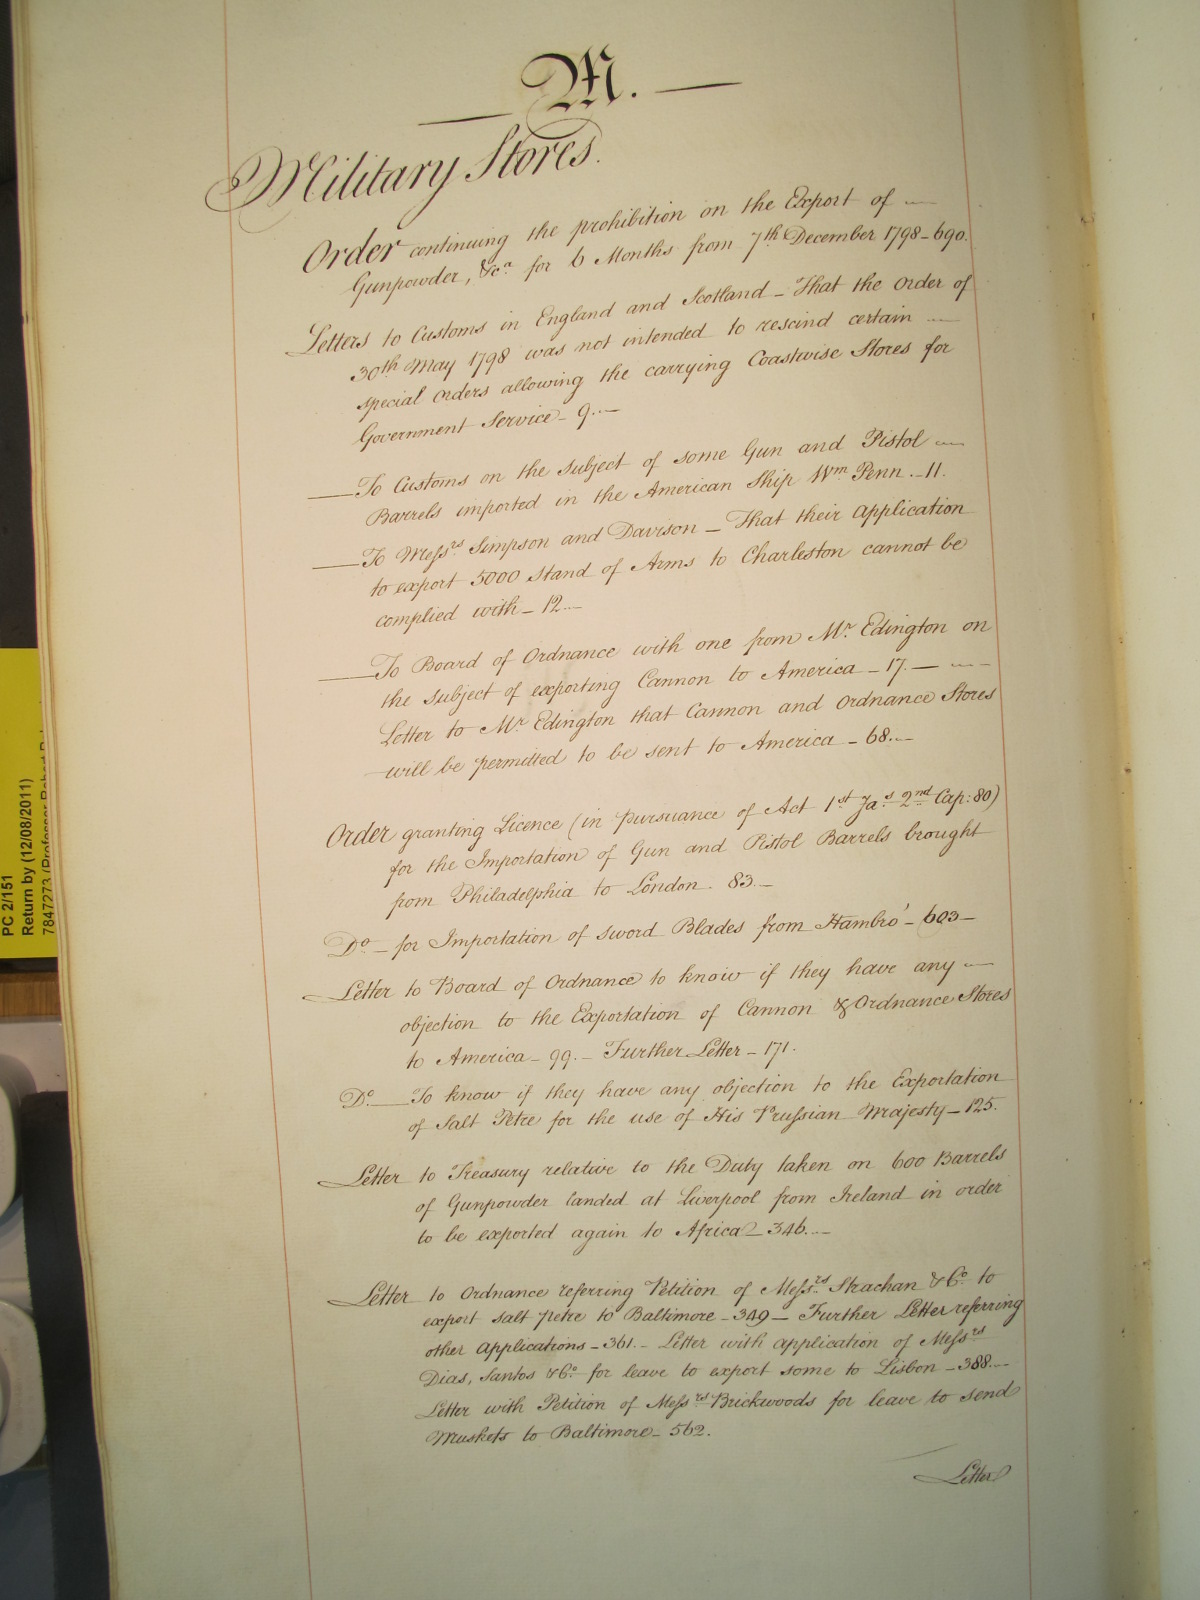 M.
Military Stores.
Order continuing the prohibition on the Export of
Gunpowder, &c.a for 6 Months from 7th December 1798 - 690.
Letters to Customs in England and Scotland - That the Order of
30th May 1798 was not intended to rescind certain
special Orders allowing the carrying Coastwise Stores for
Government Service - 9.
To Customs on the subject of some Gun and Pistol
Barrels imported in the American Ship Wm Penn. - 11.
To Messrs Simpson and Davison - That their Application
to export 5000 Stand of Arms to Charleston cannot be
complied with - 12
To Board of Ordnance with one from Mr Edington on
the subject of exporting Cannon to America - 17.
Letter to Mr Edington that Cannon and Ordnance Stores
will be permitted to be sent to America - 68.
Order granting Licence (in pursuance of Act 1st Jas 2nd Cap: 80)
for the Importation of Gun and Pistol Barrels brought
from Philadelphia to London. 83.
Do - for Importation of Sword Blades from Hambro' - 603
Letter to Board of Ordnance to know if they have any
objection to the Exportation of Cannon & Ordnance Stores
to America - 99. - Further Letter - 171.
Do. To know if they have any objection to the Exportation
of Salt Petre for the use of His Prussian Majesty - 125.
Letter to Treasury relative to the Duty taken on 600 Barrels
of Gunpowder landed at Liverpool from Ireland in order
to be exported again to Africa - 346.
Letter to Ordnance referring Petition of Messrs Strachan & Co to
export salt petre to Baltimore - 349 - Further Letter referring
other Applications - 361. - Letter with application of Messrs
Dias, Santos & Co. for leave to export some to Lisbon - 388.
Letter with Petition of Messrs Brickwoods for leave to send
Muskets to Baltimore - 562.
Letter
PC 2/151
Return by (12/08/2011)
7847273 (Professor Robert